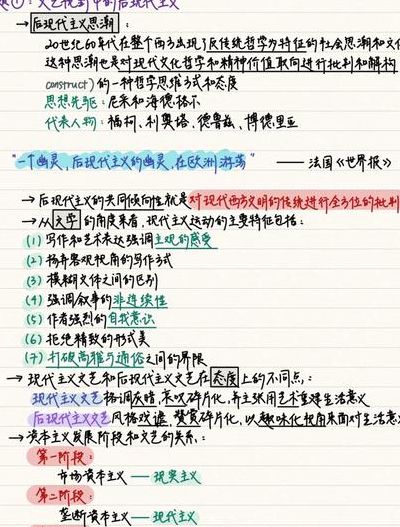 ①：文艺视野中的后现代主义
→ 后现代主义思潮：
20世纪60年代在整个西方出现了反传统哲学为特征的社会思潮和文化
这种思潮也是对现代文化哲学和精神价值取向进行批判和解构
construct）的一种哲学思维方式和态度
思想先驱：尼采和海德格尔
代表人物：福柯、利奥塔、德鲁兹、博德里亚
“一个幽灵，后现代主义的幽灵，在欧洲游荡” —— 法国《世界报》
→ 后现代主义的共同倾向性就是对现代西方文明的传统进行全方位的批判
→ 从文学的角度来看，现代主义运动的主要特征包括：
(1) 写作和艺术表达强调主观的感受
(2) 扬弃客观视角的写作方式
(3) 模糊文体之间的区别
(4) 强调叙事的非连续性
(5) 作者强烈的自我意识
(6) 拒绝精致的形式美
(7) 打破高雅与通俗之间的界限
→ 现代主义文艺和后现代主义文艺在态度上的不同点：
现代主义文艺格调灰暗，哀叹碎片化，并主张用艺术重建生活意义
后现代主义文艺风格戏谑，赞赏碎片化，以趣味化视角来面对生活意
→ 资本主义发展阶段和文艺的关系：
第一阶段：
市场资本主义 —— 现实主义
第二阶段：
垄断资本主义 —— 现代主义